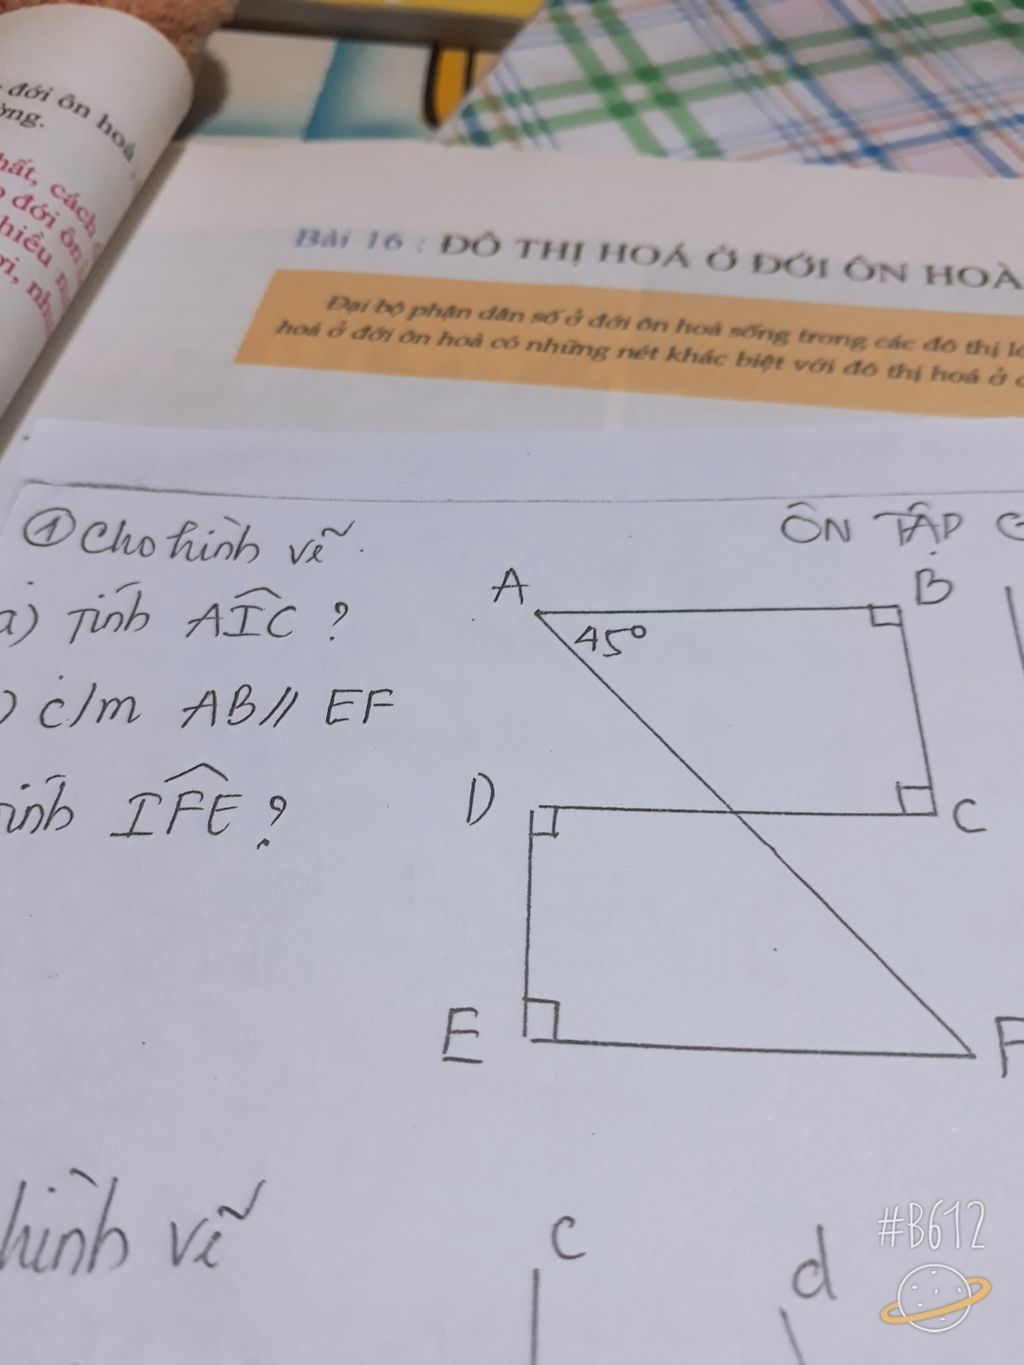 đới ôn hoà.
ờng.
hất, cách
đới ôn
hiều
Bài 16 : ĐÔ THỊ HOÁ Ở ĐỚI ÔN HOÀ
Đại bộ phận dân số ở đới ôn hoà sống trong các đô thị
hoá ở đới ôn hoà có những nét khác biệt với đô thị hoá ở
① Cho hình vẽ.
ÔN TẬP
a) Tính AIC ?
) c/m AB // EF
ính IFE ?
A
B
45°
D
C
E
F
hình vẽ
c
d
#B612